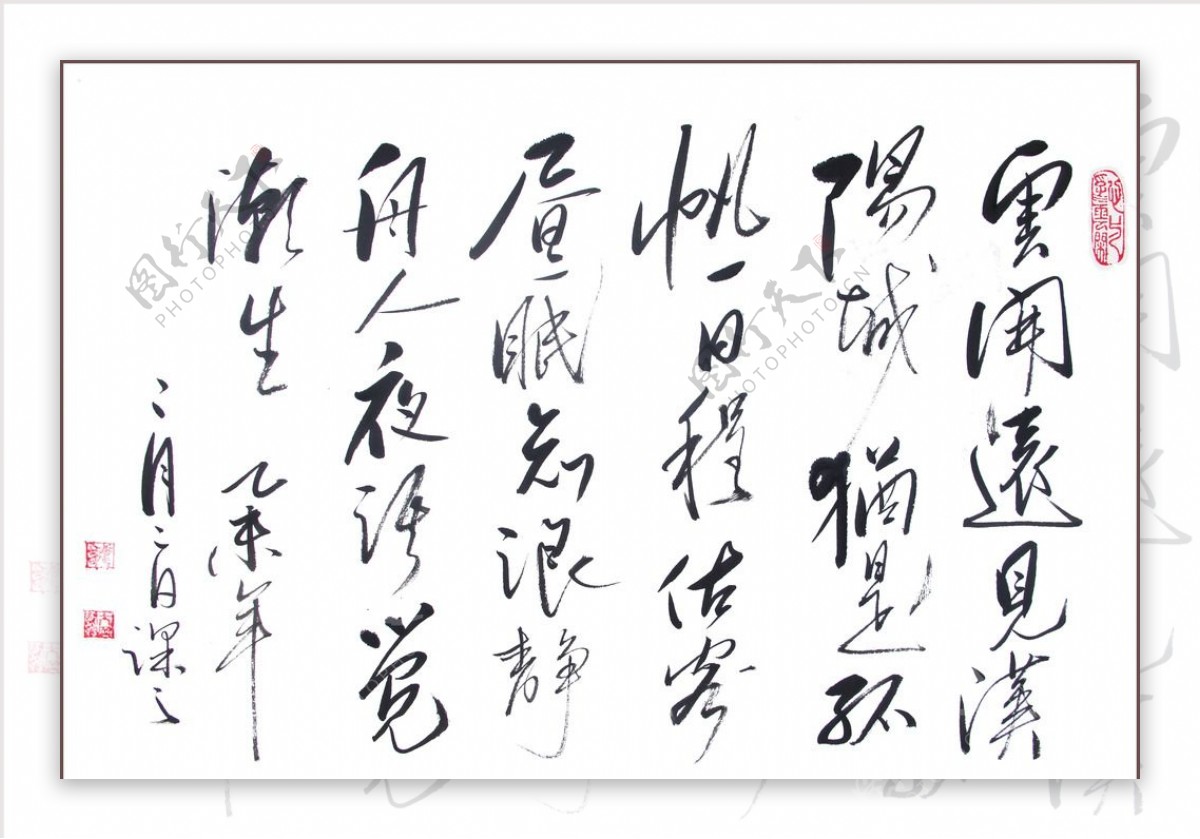 雲開遠見漢
陽城猶是孤
帆一日程估客
昼眠知浪静
舟人夜語覺
潮生 乙未年
二月二日課之
图行天下
PHOTOPHOTO.CN